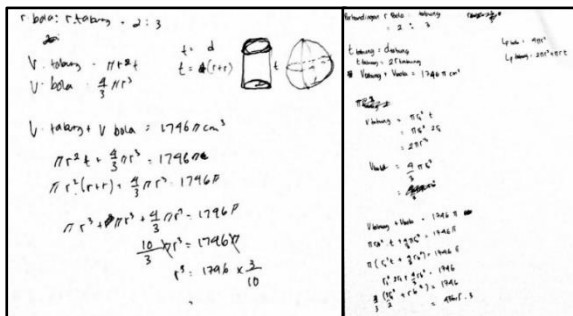 r bola : r tabung = 2 : 3
V. tabung = πr²t
t = d
t = (r+r)
t
V. bola = 4/3 πr³
V. tabung + V bola = 1746π cm³
πr²t + 4/3 πr³ = 1746π
πr²(r+r) + 4/3 πr³ = 1746π
πr³ + πr³ + 4/3 πr³ = 1746π
10/3 πr³ = 1746π
r³ = 1746 × 3/10
Perbandingan r bola : tabung
= 2 : 3
t tabung = d tabung
t tabung = 2r tabung
V tabung + V bola = 1746π cm³
Lp bola = 4πr²
Lp tabung = 2πr² + πrt
V tabung = πr² t
= πr² 2r
= 2πr³
V bola = 4/3 πr³
V tabung + V bola = 1746π
= 1746π
= 1746π
= 1746
= 1746